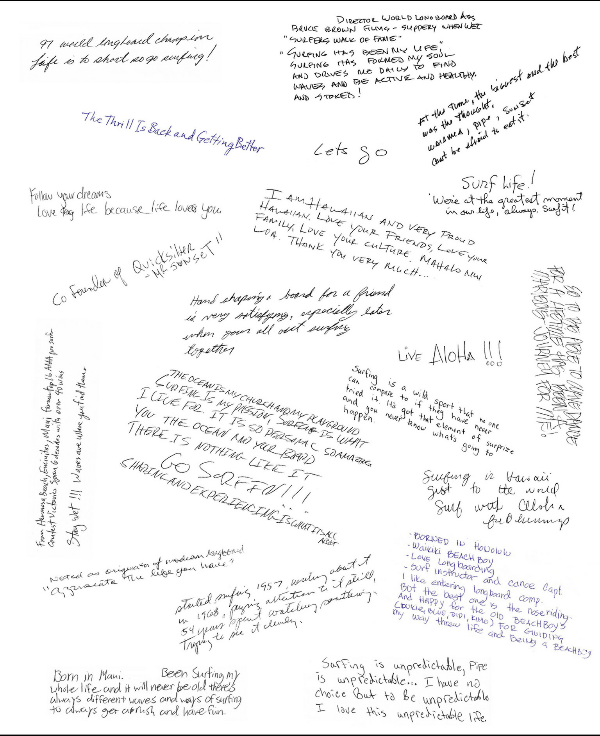 97 world longboard champion
Life is to short so go surfing!
Director World Longboard Assn
Bruce Brown Films - Slippery When Wet
"Surfers Walk of Fame"
"Surfing has been my life,
surfing has formed my soul
and drives me daily to find
waves and be active and healthy.
and stoked!
At the time, the biggest and the best
was the thought,
waimea, pipe, sunset
cant be afraid to eat it.
The Thrill Is Back and Getting Better
Lets go
Surf Life!
"We're at the greatest moment
in our life, always. Surf it!
Follow your dreams
Love life because life loves you
I am Hawaiian and very proud
Hawaiian. Love your friends, Love your
family, Love your culture. Mahalo
Thank you very much...
Co Founder of Quicksilver
"Mr Sunset"
Hand shaping a board for a friend
is very satisfying, especially later
when your all out surfing
together
Live Aloha!!!
Surfing is a wild sport that no one
can compare to if they have never
tried it. Its got that element of surprise
and you never know whats going to
happen
The ocean is my church and my playground
Surfing is my passion, surfing is what
I live for. It is so personal so amazing
You the ocean and your board
There is nothing like it
Go Surfin!!!
Sharing and experiencing is what it's all
about
From Hermosa Beach,
decades with over 90 wins
Stay Wet!!! Waves are where you find them
Surfing is Hawaii
gift to the world
Surf with Aloha
Noted as originator of modern legbond
"Appreciate the life you have"
started surfing 1957 waiting about it
in 1968, paying attention to it still,
54 years spent watching something.
Trying to see it clearly.
- Borned in Honolulu
- Waikiki BeachBoy
- Love Longboarding
- Surf instructor and canoe Capt.
I like entering longboard comp.
But the best one is the noseriding.
And Happy for the old BeachBoys
for guiding
my way threw life and being a BeachBoy
Born in Maui. Been surfing my
whole life and it will never be old theres
always different waves and ways of surfing
to always get a rush and have fun.
Surfing is unpredictable, Pipe
is unpredictable... I have no
choice but to be unpredictable
I love this unpredictable life.